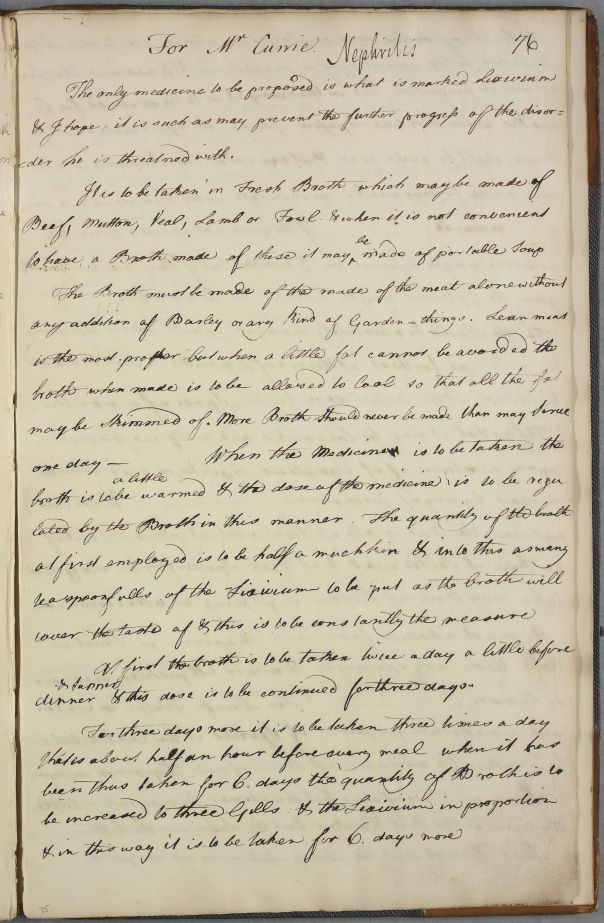 For Mr Currie. Nephritis 76
The only medicine to be proposed is what is marked Lixivium
& I hope it is such as may prevent the further progress of the disor=
=der he is threatned with.
It is to be taken in Fresh Broth which may be made of
Beef, Mutton, Veal, Lamb or Fowl & when it is not convenient
to have a Broth made of these it may be made of portable Soup
The Broth must be made of the made of the meat alone without
any addition of Barley or any Kind of Garden-things. Lean meat
is the most proper but when a little fat cannot be avoided the
broth when made is to be allowed to cool so that all the fat
may be skimmed of. More Broth should never be made than may serve
one day — When the Medicine is to be taken the
broth is to be a little warmed & the dose of the medicine is to be regu
lated by the Broth in this manner. The quantity of the broth
at first employed is to be half a muchkin & into this as many
teaspoonfulls of the Lixivium to be put as the broth will
cover the taste of & this is to be constantly the measure
At first the broth is to be taken twice a day a little before
dinner & supper & this dose is to be continued for three days.
For three days more it is to be taken three times a day
that is about half an hour before every meal when it has
been thus taken for 6. days the quantity of Broth is to
be increased to three Gills & the Lixivium in proportion
& in this way it is to be taken for 6. days more
75